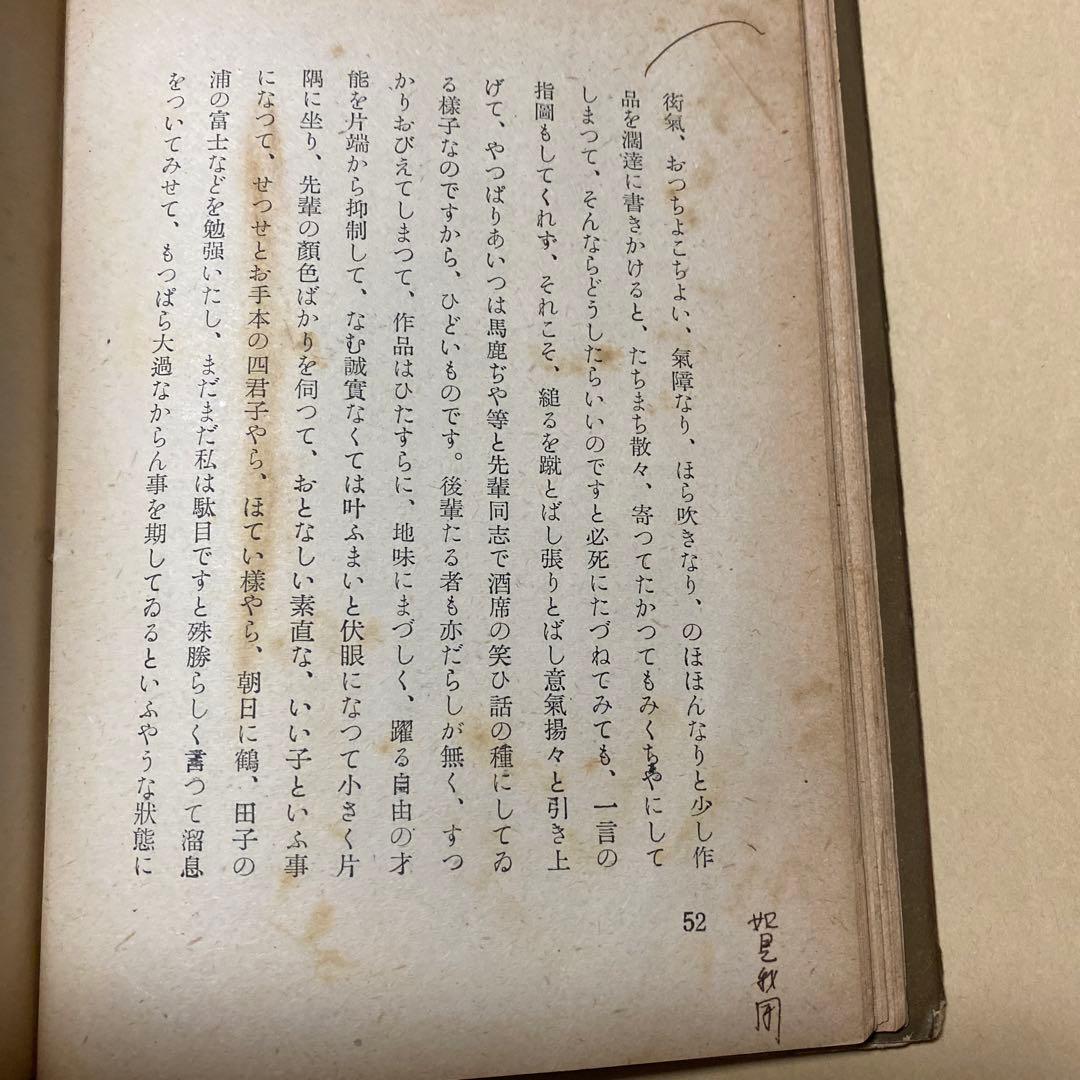 衒氣、おつちよこちよい、氣障なり、ほら吹きなり、のほほんなりと少し作
品を濶達に書きかけると、たちまち散々、寄つてたかつてもみくちやにして
しまつて、そんならどうしたらいいのですと必死にたづねてみても、一言の
指圖もしてくれず、それこそ、縋るを蹴とばし張りとばし意氣揚々と引き上
げて、やつぱりあいつは馬鹿ぢや等と先輩同志で酒席の笑ひ話の種にしてゐ
る樣子なのですから、ひどいものです。後輩たる者も亦だらしが無く、すつ
かりおびえてしまつて、作品はひたすらに、地味にまづしく、躍る自由の才
能を片端から抑制して、なむ誠實なくては叶ふまいと伏眼になつて小さく片
隅に坐り、先輩の顏色ばかりを伺つて、おとなしい素直な、いい子といふ事
になつて、せつせとお手本の四君子やら、ほてい樣やら、朝日に鶴、田子の
浦の富士などを勉强いたし、まだまだ私は駄目ですと殊勝らしく書つて溜息
をついてみせて、もつぱら大過なからん事を期してゐるといふやうな狀態に
52
如是我聞